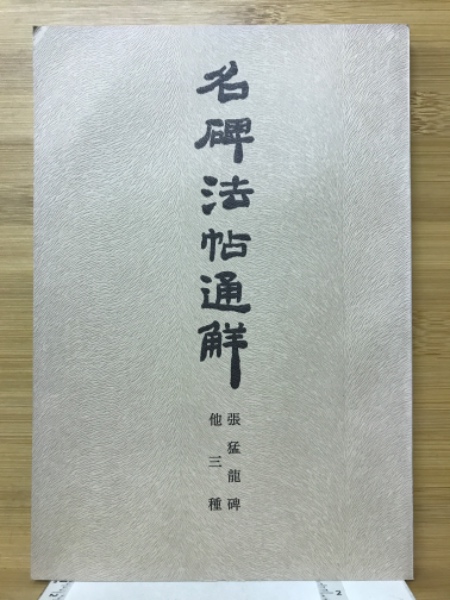 名碑法帖通解
張猛龍碑
他三種